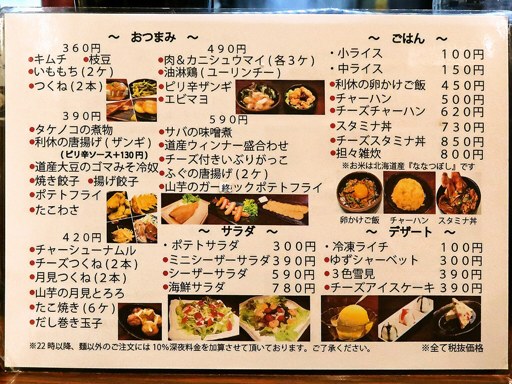 ～ おつまみ ～
360円
●キムチ ●枝豆
●いももち(2ケ)
●つくね(2本)
390円
●タケノコの煮物
●利休の唐揚げ(ザンギ)
(ピリ辛ソース+130円)
●道産大豆のゴマみそ冷奴
●焼き餃子 ●揚げ餃子
●ポテトフライ
●たこわさ
420円
●チャーシューナムル
●チーズつくね(2本)
●月見つくね(2本)
●山芋の月見とろろ
●たこ焼き(6ケ)
●だし巻き玉子
490円
●肉&カニシュウマイ(各3ケ)
●油淋鶏(ユーリンチー)
●ピリ辛ザンギ
●エビマヨ
590円
●サバの味噌煮
●道産ウィンナー盛合わせ
●チーズ付きいぶりがっこ
●ふぐの唐揚げ(2ケ)
●山芋のガー終ックポテトフライ
～ サラダ ～
・ポテトサラダ 300円
●ミニシーザーサラダ 390円
●シーザーサラダ 590円
●海鮮サラダ 780円
～ ごはん ～
・小ライス 100円
・中ライス 150円
●利休の卵かけご飯 450円
●チャーハン 500円
●チーズチャーハン 620円
●スタミナ丼 730円
●チーズスタミナ丼 850円
●担々雑炊 800円
※お米は北海道産『ななつぼし』です
卵かけご飯 チャーハン スタミナ丼
～ デザート ～
・冷凍ライチ 100円
●ゆずシャーベット 300円
●3色雪見 390円
●チーズアイスケーキ 390円
※22時以降、麺以外のご注文には10%深夜料金を加算させて頂いております。ご了承ください。
※全て税抜価格